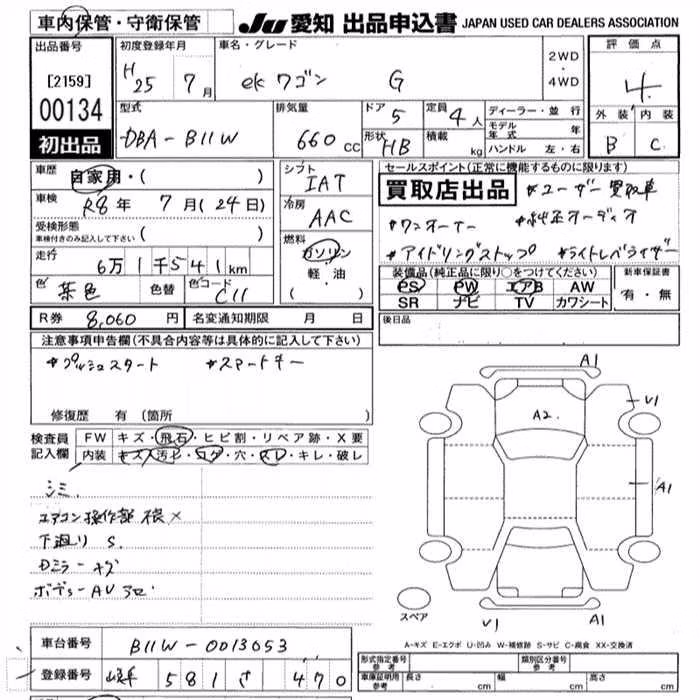 車内保管・守衛保管 JU 愛知 出品申込書 JAPAN USED CAR DEALERS ASSOCIATION
出品番号 初度登録年月 車名・グレード 2WD・4WD 評価点
[2159] H25 7月 ekワゴン G 4
00134 型式 排気量 ドア 5 定員 4人 ディーラー・並行 外装 内装
初出品 DBA-B11W 660cc 形状 HB 積載 kg モデル年式 年 ハンドル 左・右 B C
車歴 自家用・( ) シフト IAT セールスポイント(正常に機能するものに限ります)
車検 R8年 7月(24日) 冷房 AAC 買取店出品 *ユーザー買取車
受検形態 車検付きのみ記入して下さい ( ) *ワンオーナー *純正オーディオ
走行 6万1千541km 燃料 ガソリン・軽油 ( ) *アイドリングストップ *ライトレベライザー
色 茶色 色替 色コード C11 装備品(純正品に限り○をつけてください) 新車保証書
PS PW エアB AW 有・無
SR ナビ TV カワシート
R券 8,060円 名変通知期限 月 日 後日品
注意事項申告欄(不具合内容等は具体的に記入して下さい)
*プッシュスタート *スマートキー
修復歴 有 (箇所 )
検査員記入欄 FW キズ・飛石・ヒビ割・リペア跡・X要
内装 キズ・汚レ・コゲ・穴・スレ・キレ・破レ
シミ
エアコン操作部 様×
下廻り S.
Dミラーキズ
ボディーAU
A1
V1
A2.
A1
スペア
V1 A1
A-キズ E-エクボ U-凹み W-補修跡 S-サビ C-腐食 XX-交換済
車台番号 B11W-0013053 形式指定番号 参考 類別区分番号 参考
登録番号 岐阜 581 さ 470 車庫証明用参考 長さ cm 幅 cm 高さ cm